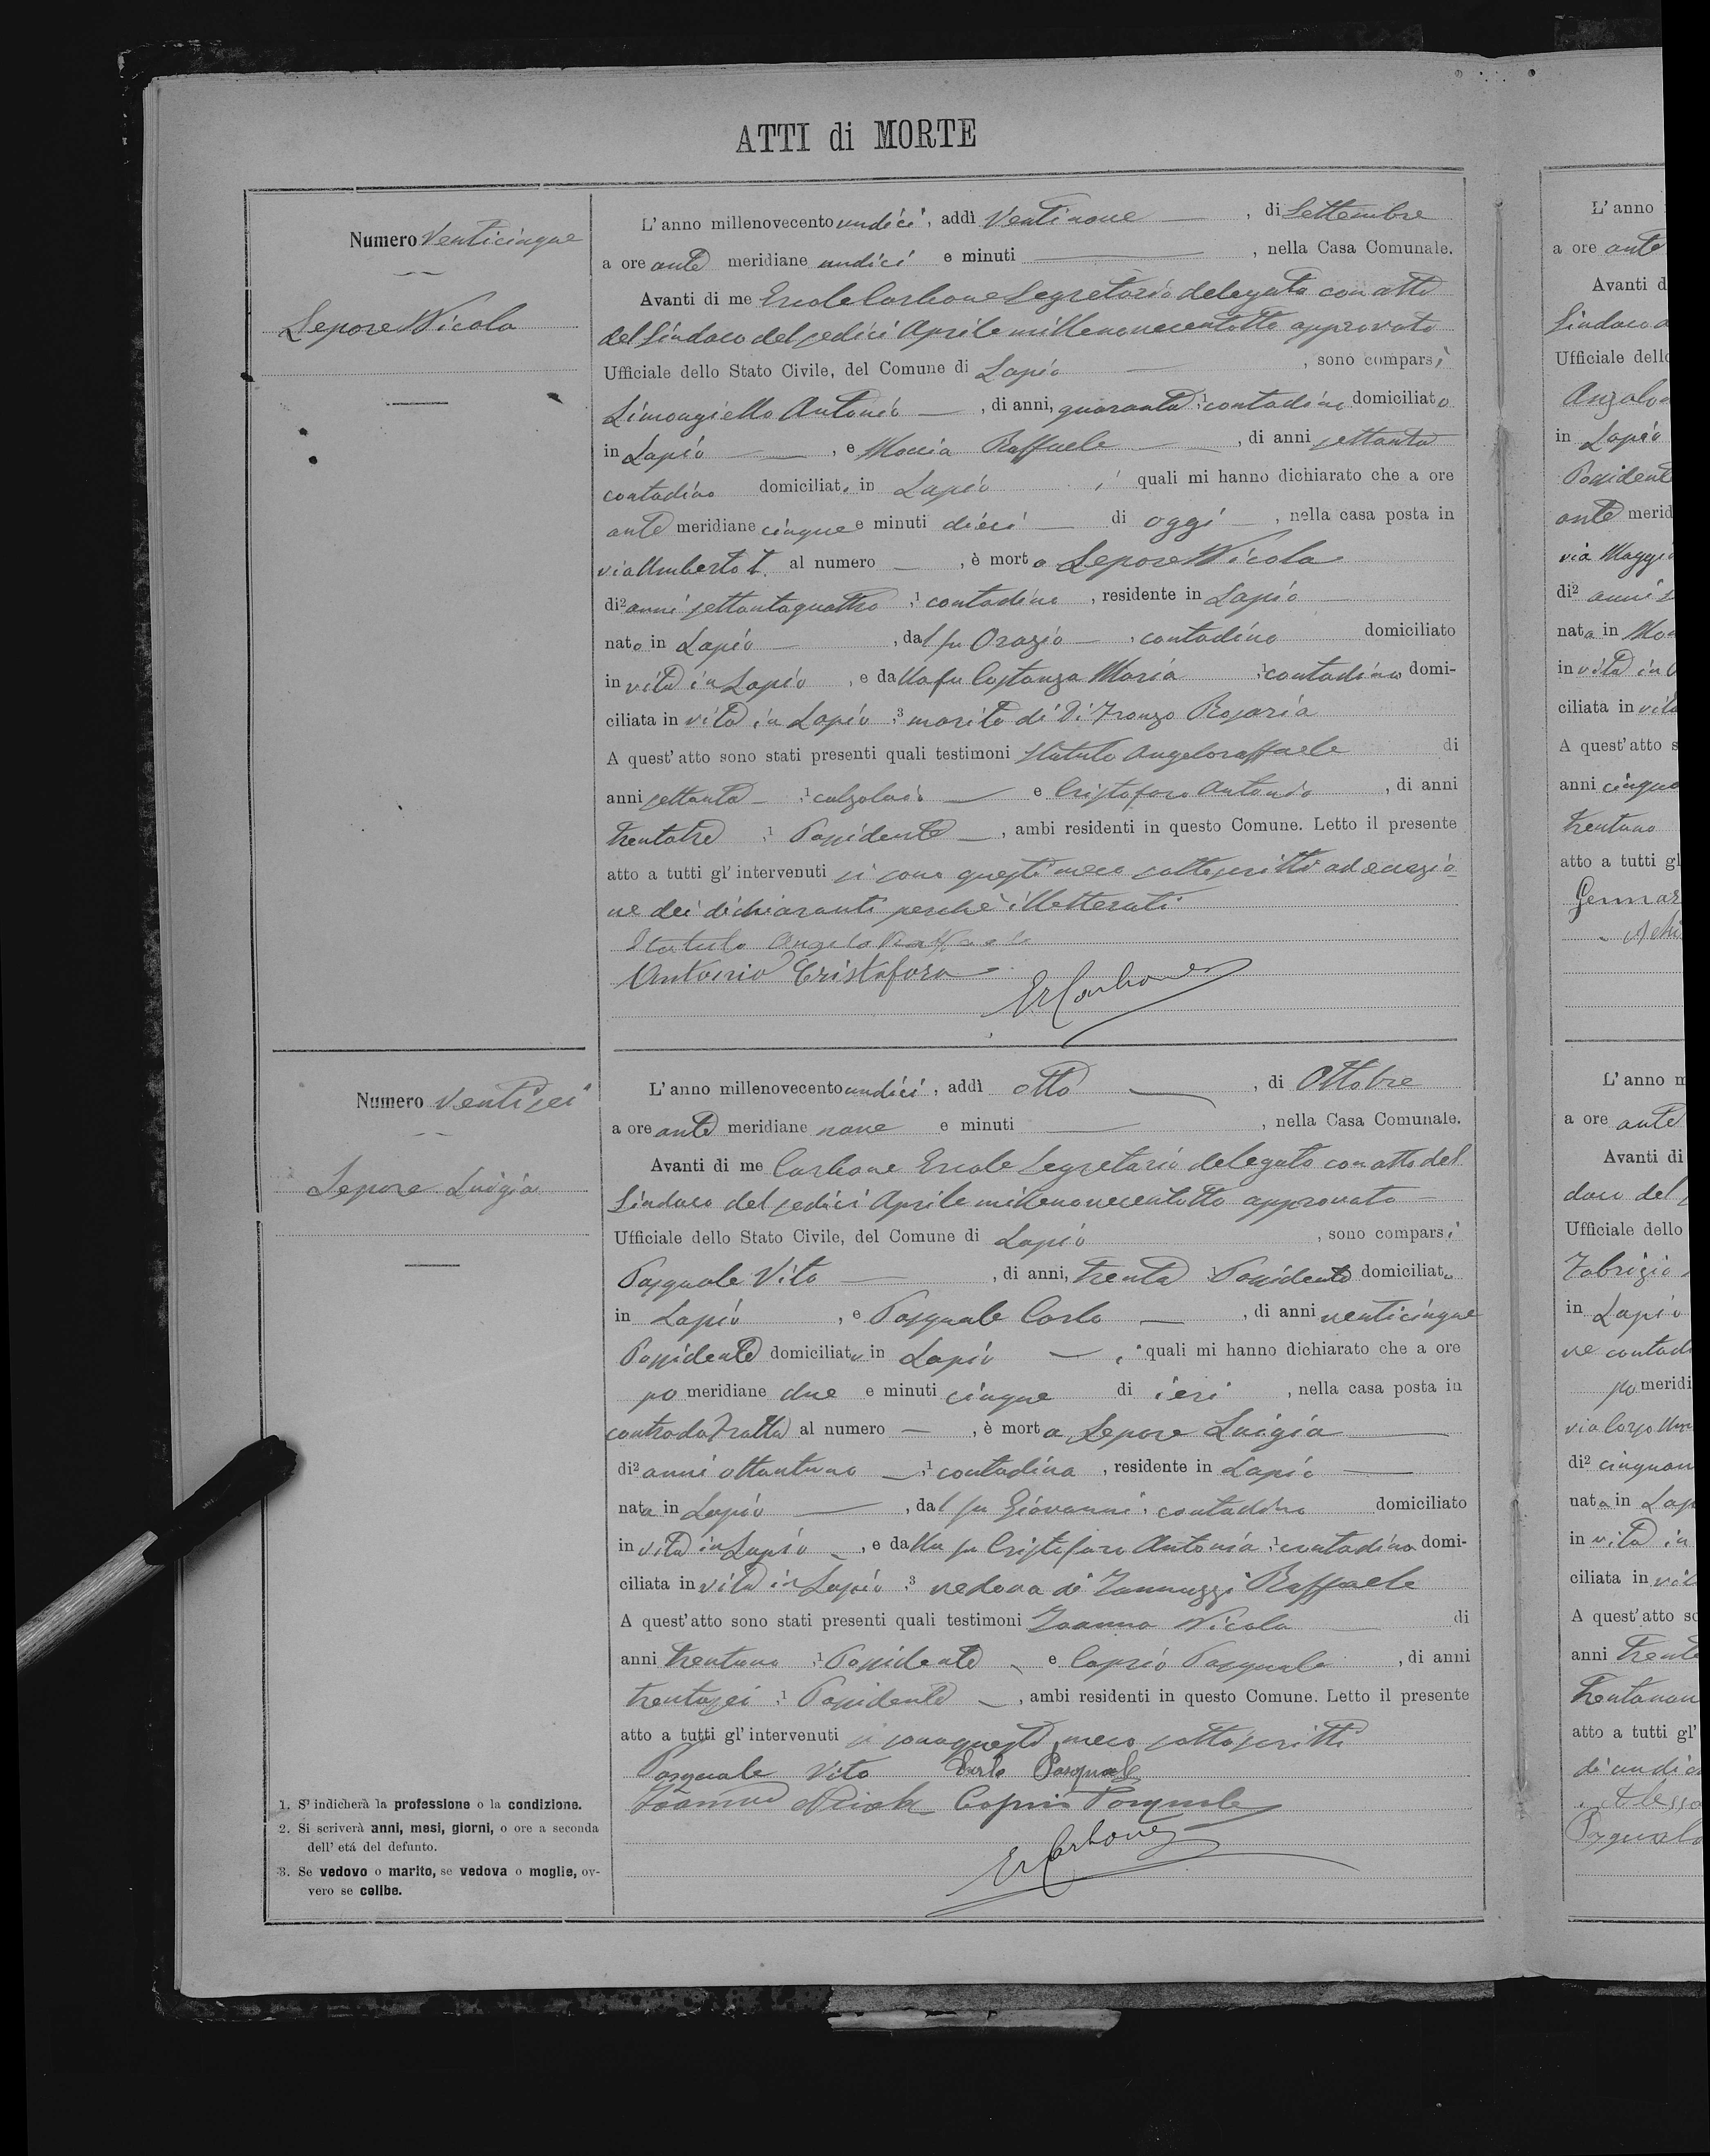 ATTI di MORTE
Numero Venticinque
Lepore Nicola
L'anno millenovecento undici, addì Ventinove —, di Settembre
a ore ante meridiane undici e minuti —, nella Casa Comunale.
Avanti di me Ercole Carbone Segretario delegato con atto
del Sindaco del sedici Aprile millenovecentotto approvato
Ufficiale dello Stato Civile, del Comune di Lapio —, sono comparsi
Limongiello Antonio —, di anni, quaranta 1 contadino domiciliato
in Lapio —, e Moccia Raffaele —, di anni settanta
contadino domiciliato in Lapio, i quali mi hanno dichiarato che a ore
ante meridiane cinque e minuti dieci — di oggi —, nella casa posta in
via Umberto I. al numero —, è morto Lepore Nicola
di2 anni settantaquattro, 1 contadino, residente in Lapio —
nato in Lapio —, dal fu Orazio —, contadino domiciliato
in vita in Lapio, e dalla fu Costanza Maria 1 contadina domi-
ciliata in vita in Lapio, 3 marito di Di Fronzo Rosaria
A quest'atto sono stati presenti quali testimoni Statuto Angeloraffaele di
anni settanta —, 1 calzolaio — e Cristofaro Antonio, di anni
trentatre, 1 Possidente —, ambi residenti in questo Comune. Letto il presente
atto a tutti gl'intervenuti si sono questi meco sottoscritti ad eccezio-
ne dei dichiaranti perchè illetterati
Statuto Angelo Raffaele
Antonio Cristofaro
ErCarbone
Numero Ventisei
Lepore Luigia
L'anno millenovecento undici, addì otto —, di Ottobre
a ore ante meridiane nove e minuti —, nella Casa Comunale.
Avanti di me Carbone Ercole Segretario delegato con atto del
Sindaco del sedici Aprile millenovecentotto approvato —
Ufficiale dello Stato Civile, del Comune di Lapio, sono comparsi
Pasquale Vito —, di anni, trenta 1 Possidente domiciliato
in Lapio, e Pasquale Carlo —, di anni venticinque
Possidente domiciliato in Lapio —, i quali mi hanno dichiarato che a ore
po meridiane due e minuti cinque di ieri, nella casa posta in
contrada Tratta al numero —, è morta Lepore Luigia —
di2 anni ottantuno —, 1 contadina, residente in Lapio —
nata in Lapio —, dal fu Giovanni, contadino domiciliato
in vita in Lapio —, e dalla fu Cristofaro Antonia, 1 contadina domi-
ciliata in vita in Lapio, 3 vedova di Iannuzzi Raffaele
A quest'atto sono stati presenti quali testimoni Ioanna Nicola — di
anni trentuno, 1 Possidente — e Caprio Pasquale, di anni
trentasei, 1 Possidente —, ambi residenti in questo Comune. Letto il presente
atto a tutti gl'intervenuti si sono questi meco sottoscritti
Pasquale Vito Carlo Pasquale
Ioanna Nicola Caprio Pasquale
ErCarbone
1. S'indicherà la professione o la condizione.
2. Si scriverà anni, mesi, giorni, o ore a seconda
dell'etá del defunto.
3. Se vedovo o marito, se vedova o moglie, ov-
vero se celibe.
L'anno
a ore ante
Avanti d
Sindaco
Ufficiale dello
in Lapio
Possidente
ante merid
via Maggio
di2 anni
nata in
in vita in
ciliata in vita
A quest'atto s
anni cinqua
trentuno
atto a tutti gl
Gennar
L'anno m
a ore ante
Avanti di
daco del
Ufficiale dello
Fabrizio
in Lapio
ne contad
po meridi
via Corso
di2 cinquan
nata in Lap
in vita in
ciliata in vit
A quest'atto so
anni trent
trentanov
atto a tutti gl'
Pasquale